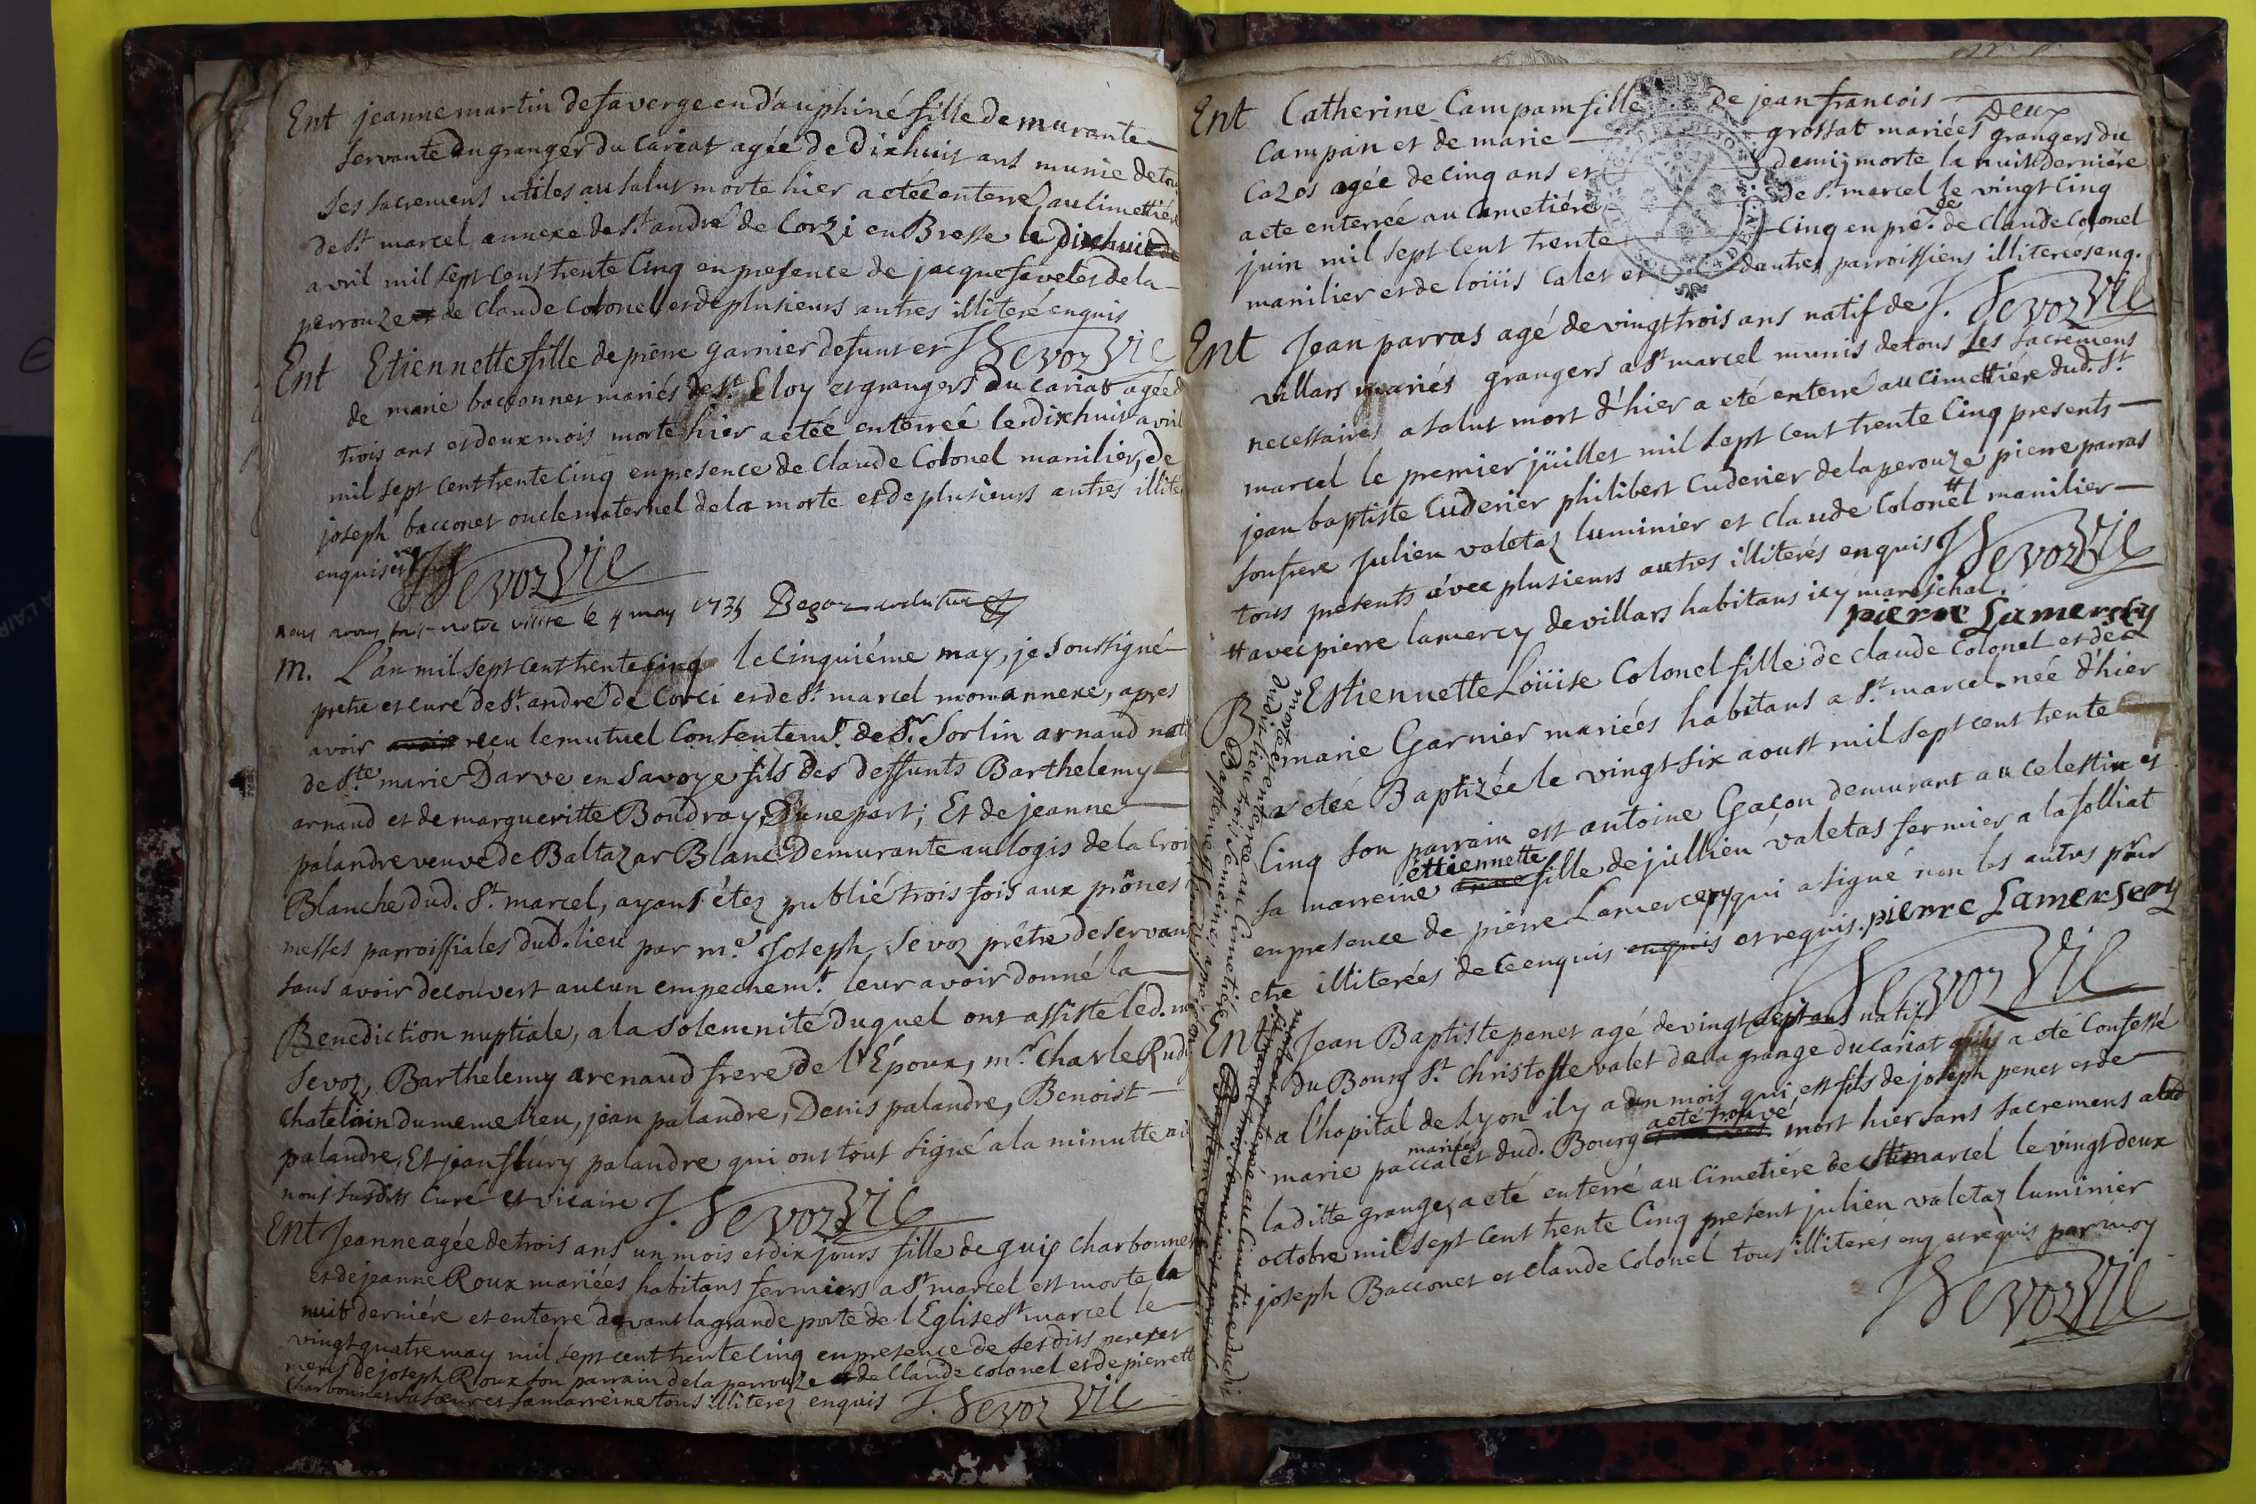 Ent jeanne martin de faverge en d'auphiné fille demurante
servante du granger du Cariat agée de Dixhuit ans munie de tous
ses sacremens utiles au salut morte hier a etéé enterré au cimettiére
de st marcel annexe de st. andré de Corzi en Bresse le dixhuit de
avril mil sept cens trente Cinq en presence de jacque favelet de la
perrouze et de Claude Colonel et de plusieurs autres illiteré enquis
J Sevoz Vic
Ent Etiennette fille de pierre garnier defunt et
de marie bacconnet mariés de st. Eloy et grangers du cariat agéé de
trois ans et deux mois morte hier a etéé enterréé le dixhuit avril
mil sept cent trente Cinq en presence de Claude Colonel manilier, de
joseph bacconet oncle maternel de la morte et de plusieurs autres illite
enquis
J Sevoz Vic
nous avons fait notre visite le 4 may 1735
M. L'an mil sept cent trente cinq le cinquiéme may, je soussigné
pretre et curé de St. andré de Corci et de St. marcel mon annexe, apres
avoir avoir reçu le mutuel Consentemt. de Sr. Sorlin arnaud natif
de Ste. marie Darve en Savoye fils des deffunts Barthelemy
arnaud et de margueritte Boudray, D'une part; Et de jeanne
palandre veuve de Baltazar Blanc Demurante au logis de la Croix
Blanche dud. St. marcel, ayant étez publié trois fois aux prônes
messes parroissiales dud. lieu par mre. Joseph Sevoz prêtre deservant
sans avoir decouvert aucun empechemt. leur avoir donné la
Benediction nuptiale, a la solemnité duquel ont assisté led. mr
Sevoz, Barthelemy arenaud frere de l'Époux, mr. Charle Rude
Chatelain du meme lieu, jean palandre, Denis palandre, Benoist
palandre, Et jean flury palandre qui ont tout signé a la minutte avec
nous susdits Curé et vicaire J. Sevoz Vic
Ent Jeanne agée de trois ans un mois et dix jours fille de guip Charbonnet
et de jeanne Roux mariées habitans fermiers a St marcel est morte la
nuit derniére et enterré devant la grande porte de l'Eglise St marcel le
vingt quatre may mil sept cent trente Cinq en presence de ses dits pere et
mere de joseph Roux son parrain de la perrouze et de Claude colonel et de pierrett
Charbonnet sa sœur et sa marreine tous illiterez enquis J. Sevoz Vic
Ent Catherine Campam fille de jean francois
Campan et de marie grossat mariées grangers du
deux
Cazos agée de Cinq ans et demij morte la nuit derniére
a ete enterréé au Cimetiére de St. marcel le vingt Cinq
juin mil sept cent trente Cinq en pré.ce de Claude Colonel
manilier et de loüis Calet et d'autres parroissiens illiteres enq.
J. Sevoz Vic
Ent Jean parras agé de vingt trois ans natif de
villars mariés grangers a St marcel munis de tous les sacremens
necessaires a salut mort d'hier a eté enterré au cimettiére dud. St
marcel le premier jüillet mil sept cent trente Cinq presents
jean baptiste Cuderier philibert Cuderier de la perouze pierre parras
son frere Julien valetaz luminier et Claude Colonel manilier
tous presents avec plusieurs autres illiterés enquis J Sevoz Vic
# avec pierre lamercy de villars habitans icy mareschal.
pierre Lamersery
B Estiennette Loüise Colonel fille de claude Colonel et de
marie Garnier mariées habitans a St marcel née d'hier
a etéé Baptizée le vingt-six aoust mil sept cent trente
Cinq son parrain est antoine Gaçon demurant au Celestin et
sa marreine étiennette fille de jullien valetas fermier a la folliat
en presence de pierre Lamercery qui a signé non les autres pour
etre illiterées de ce enquis enquis et requis. pierre Lamersery
J Sevoz Vic
Ent Jean Baptiste penet agé de vingt sept ans natif
du Bourg St. Christofle valet de la grange du cariat a eté Confessé
a l'hopital de Lyon il y a un mois qui, est fils de joseph penet et de
marie paccalet mariés dud. Bourg a eté trouvé mort hier sans sacremens a lad
laditte grange, a eté enterré au Cimetiére de St marcel le vingt deux
octobre mil sept cent trente Cinq present julien valetaz luminier
joseph Bacconet et Claude Colonel tous illiterés enq et requis par moy
J Sevoz Vic